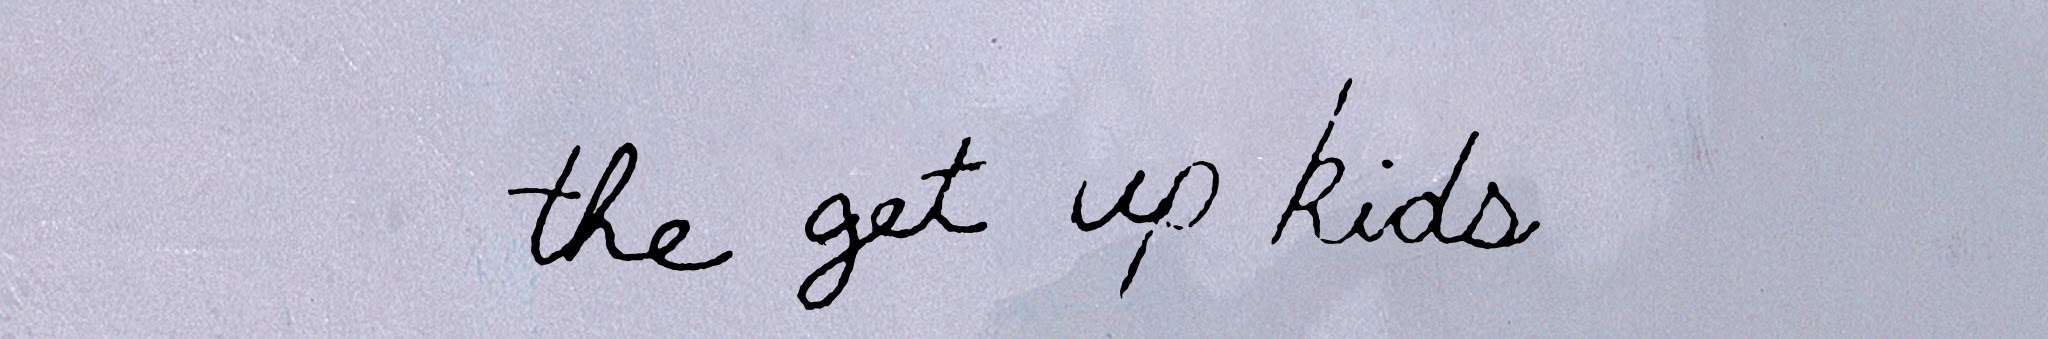 the get up kids